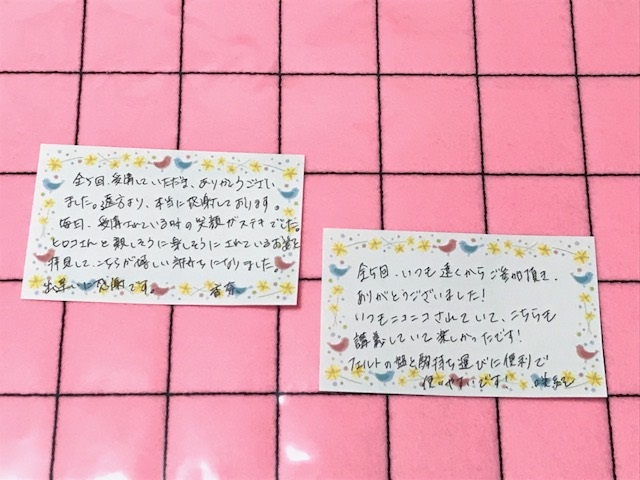 全5回、受講していただき、ありがとうござい
ました。遠方より、本当に感謝しております。
毎回、受講されている時の笑顔がステキでした。
ヒロコさんと親しそうに楽しそうにされているお姿を
拝見して、こちらが嬉しい気持ちになりました。
出逢いに感謝です。
全5回、いつも遠くからご参加頂き、
ありがとうございました!
いつもニコニコされていて、こちらも
講義していて楽しかったです!
フェルトの
運びに便利で
使いやすいです!